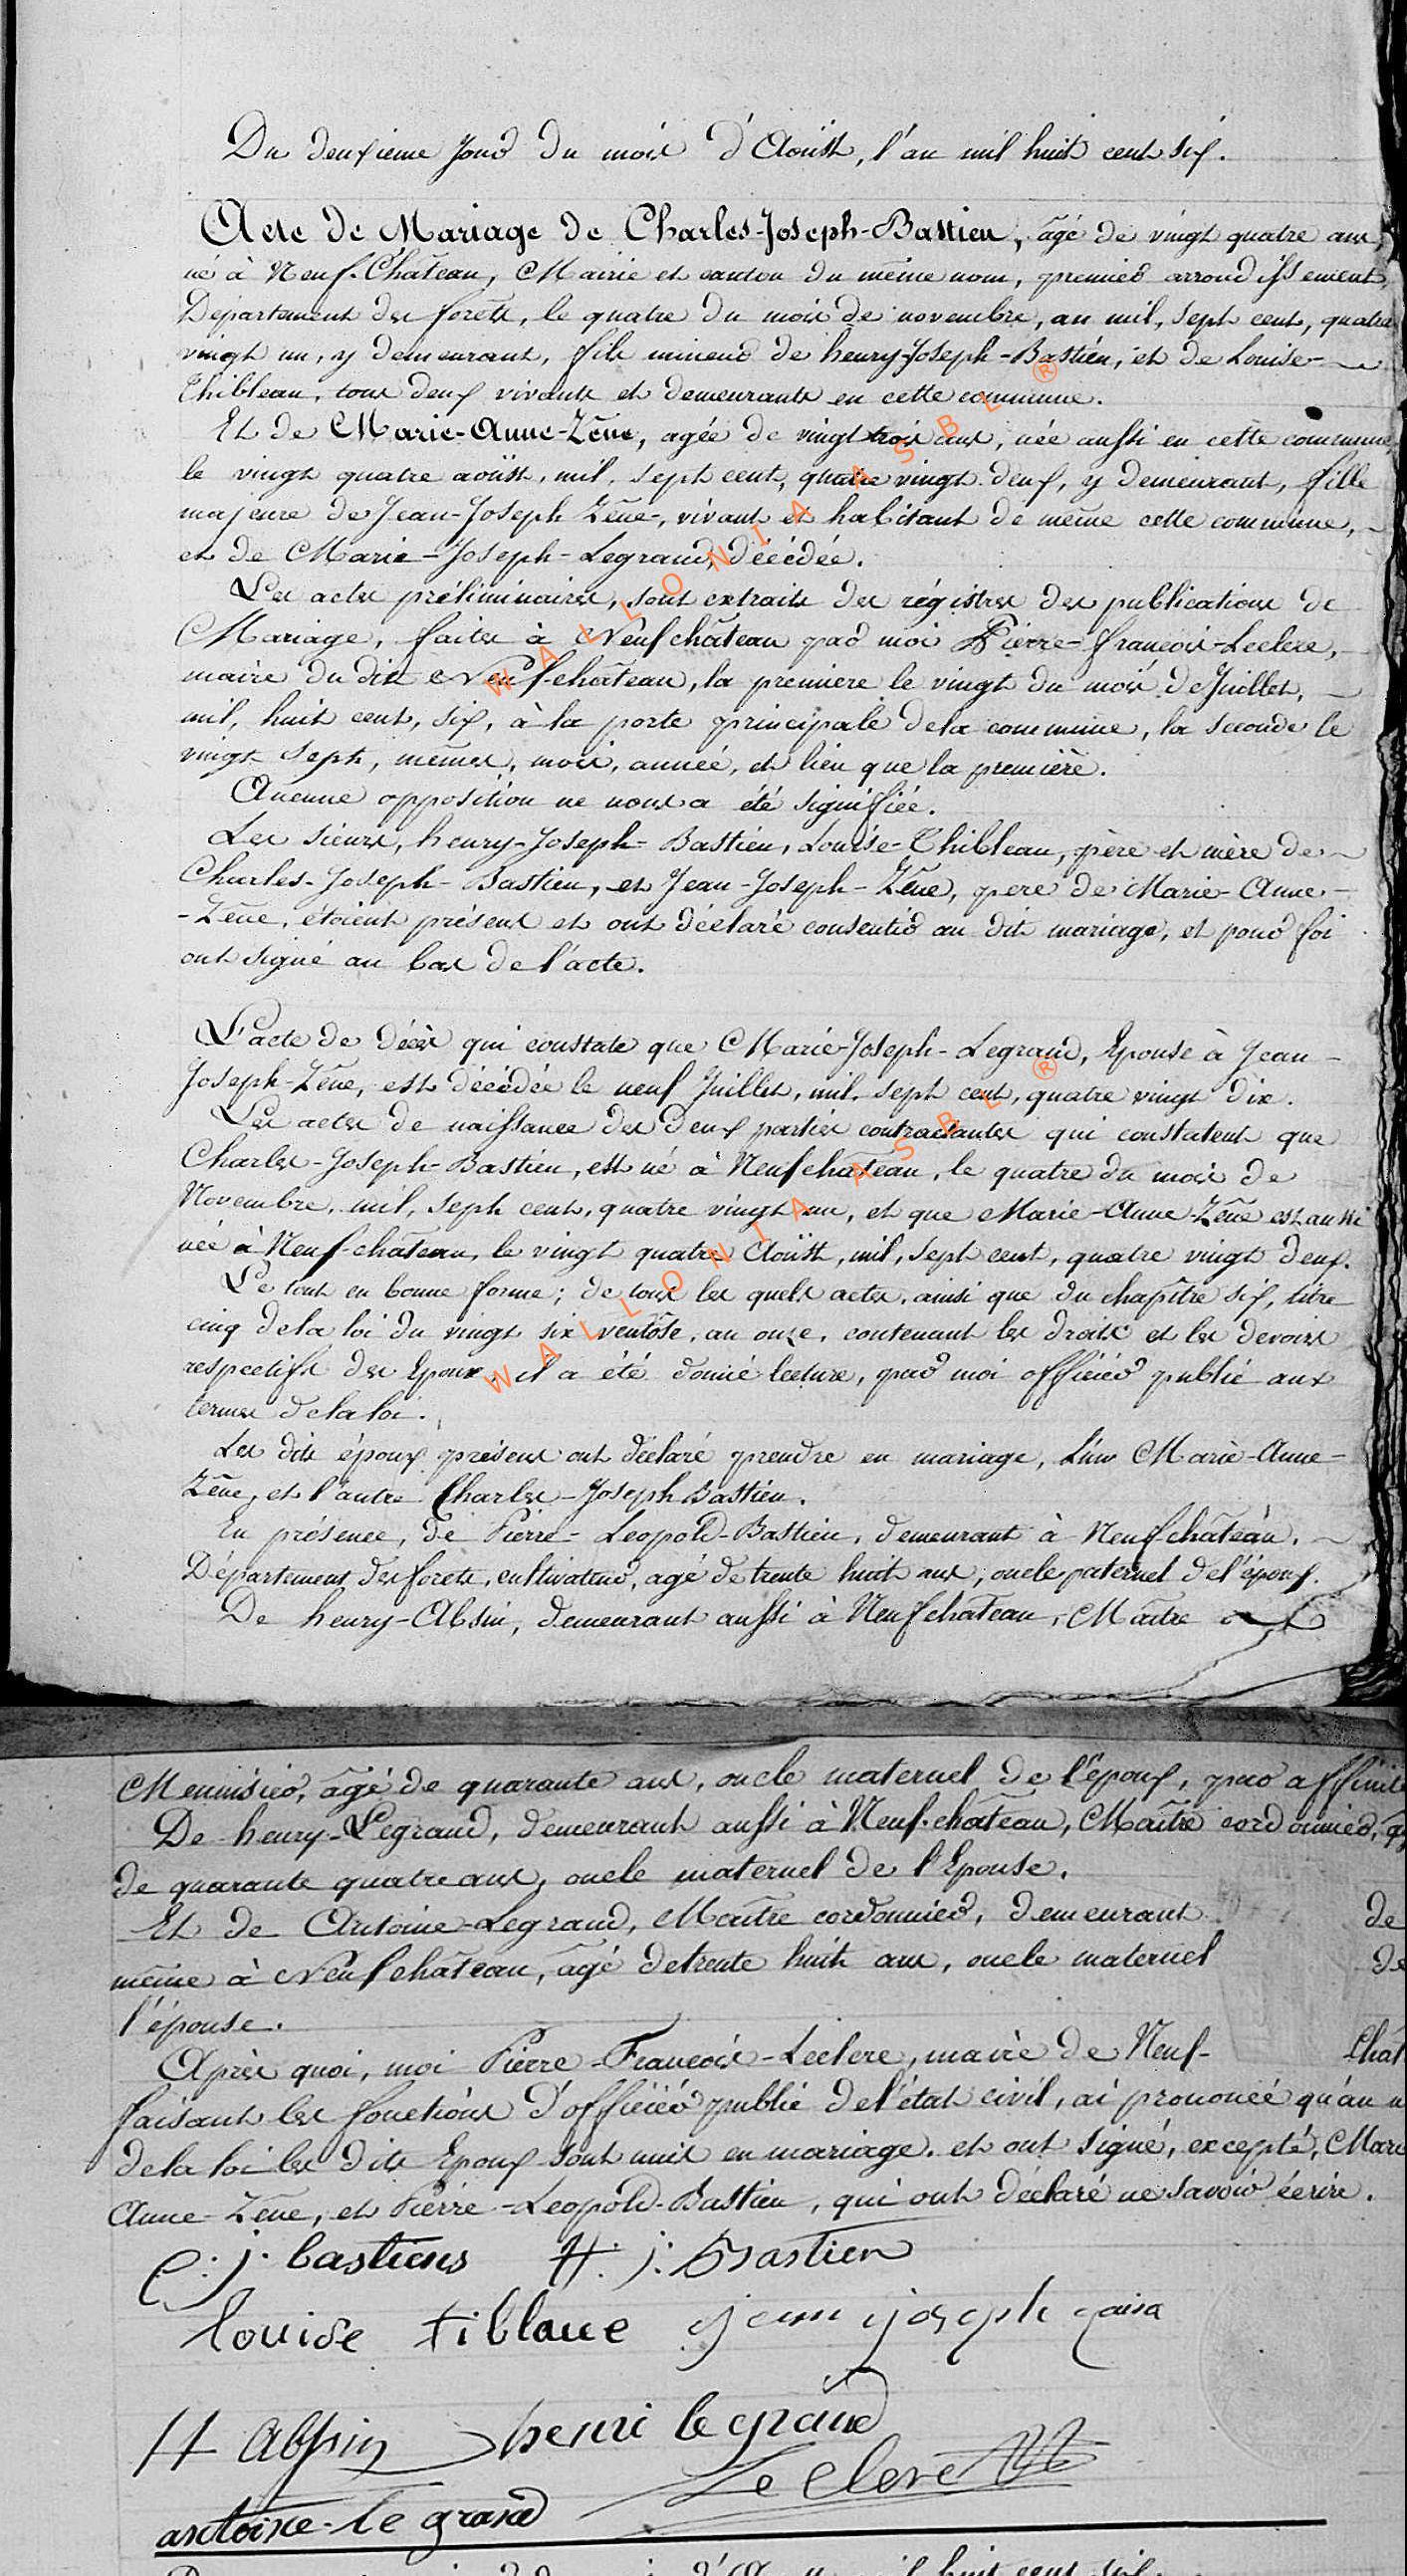 Du deuxieme Jour du mois d'Aoüst, l'an mil huit cent six.
Acte de Mariage de Charles-Joseph-Bastien, âgé de vingt quatre ans,
né à Neuf-Château, Mairie et canton du même nom, premier arrondissement,
Département des forêts, le quatre du mois de novembre, an mil, sept cent, quatre
vingt un, y demeurant, fils mineur de henry-Joseph-Bastien, et de Louise-
Thibleau, tous deux vivants et demeurants en cette commune.
Et de Marie-Anne-Zéne, agée de vingt trois ans, née aussi en cette commune,
le vingt quatre aoüst, mil, sept cent, quatre vingt deux, y demeurant, fille
majeure de Jean-Joseph Zéne-, vivant et habitant de même cette commune,
et de Marie-Joseph-Legrand, décédée.
Les actes préliminaires, sont extraits des régistres des publications de
Mariage, faites à Neufchâteau par moi Pierre-françois-Leclere,
maire du dit Neuf-château, la premiere le vingt du mois de Juillet,
mil, huit cent, six, à la porte principale de la commune, la seconde le
vingt sept, mêmes, mois, année, et lieu que la première.
Aucune opposition ne nous a été signifiée.
Les sieurs, henry-Joseph-Bastien, Louise-Thibleau, père et mère de
Charles-Joseph-Bastien, et Jean-Joseph-Zéne, pere de Marie-Anne-
-Zéne, étoient présens et ont déclaré consentir au dit mariage, et pour foi
ont signé au bas de l'acte.
L'acte de décès qui constate que Marie-Joseph-Legrand, Epouse à Jean-
Joseph-Zéne, est décédée le neuf Juillet, mil, sept cent, quatre vingt dix.
Les actes de naissance des deux parties contractantes qui constatent que
Charles-Joseph-Bastien, est né à Neufchâteau, le quatre du mois de
Novembre, mil, sept cent, quatre vingt un, et que Marie-Anne-Zéne est aussi
née à Neuf-château, le vingt quatre Aoüst, mil, sept cent, quatre vingt deux.
Le tout en bonne forme; de tous les quels actes, ainsi que du chapître six, titre
cinq de la loi du vingt six ventôse, an onze, contenant les droits et les devoirs
respectifs des Epoux, il a été donné lecture, par moi officier public aux
termes de la loi.
Les dits époux présens ont déclaré prendre en mariage, L'un Marie-Anne-
Zéne, et l'autre Charles-Joseph Bastien.
En présence, de Pierre-Leopold-Bastien, demeurant à Neufchâteau,
Département des forets, cultivateur, agé de trente huit ans, oncle paternel de l'époux.
De henry-Absin, demeurant aussi à Neufchâteau, Maître
Menuisier, âgé de quarante ans, oncle maternel de l'époux, par affinité
De henry-Legrand, demeurant aussi à Neuf-château, Maître cordonnier,
de quarante quatre ans, oncle maternel de l'Epouse.
Et de Antoine-Legrand, Maître cordonnier, demeurant de
même à Neufchâteau, âgé de trente huit ans, oncle maternel de
l'épouse.
Après quoi, moi Pierre-François-Leclere, maire de Neuf- Chât
faisant les fonctions d'officier public de l'état civil, ai prononcé qu'au n
de la loi les dits Epoux sont unis en mariage. et ont signé, excepté, Marie
Anne-Zéne, et Pierre-Leopold-Bastien, qui ont déclaré ne savoir écrire.
C: j: bastiens H: j: Bastien
louise tiblaue jean joseph zaina
H Absin henri legrand
Leclere
antoine-le grand
WALLONIA ASBL ®
WALLONIA ASBL ®